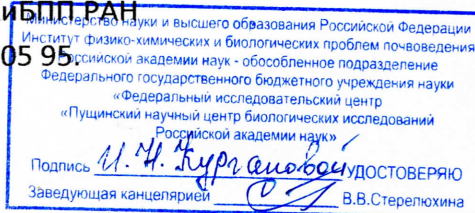 иБПП РАН
05 95.
Министерство науки и высшего образования Российской Федерации
Институт физико-химических и биологических проблем почвоведения
Российской академии наук - обособленное подразделение
Федерального государственного бюджетного учреждения науки
«Федеральный исследовательский центр
«Пущинский научный центр биологических исследований
Российской академии наук»
Подпись И. Н. Кургановой УДОСТОВЕРЯЮ
Заведующая канцелярией В.В.Стерелюхина